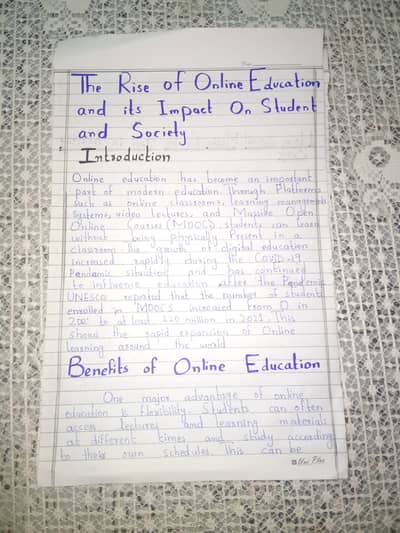 The Rise of Online Education
and its Impact On Student
and Society
Introduction
Online education has become an important
part of modern education through Platforms
such as online classrooms, learning
systems, video lectures, and Massive Open
Online Courses (MOOC) students can learn
without being physically Present in a
classroom the growth of digital education
increased rapidly during the COVID-19
Pandemic situation and has continued
to influence education after the Pandemic
UNESCO reported that the number of student
enrolled in MOOCS increased from 0 in
to at least 220 million in 2021. This
shows the rapid expansion of Online
learning around the world
Benefits of Online Education
One major advantage of online
education is flexibility. Students can often
access lectures and learning materials
at different times and study according
to their own schedules. This can be